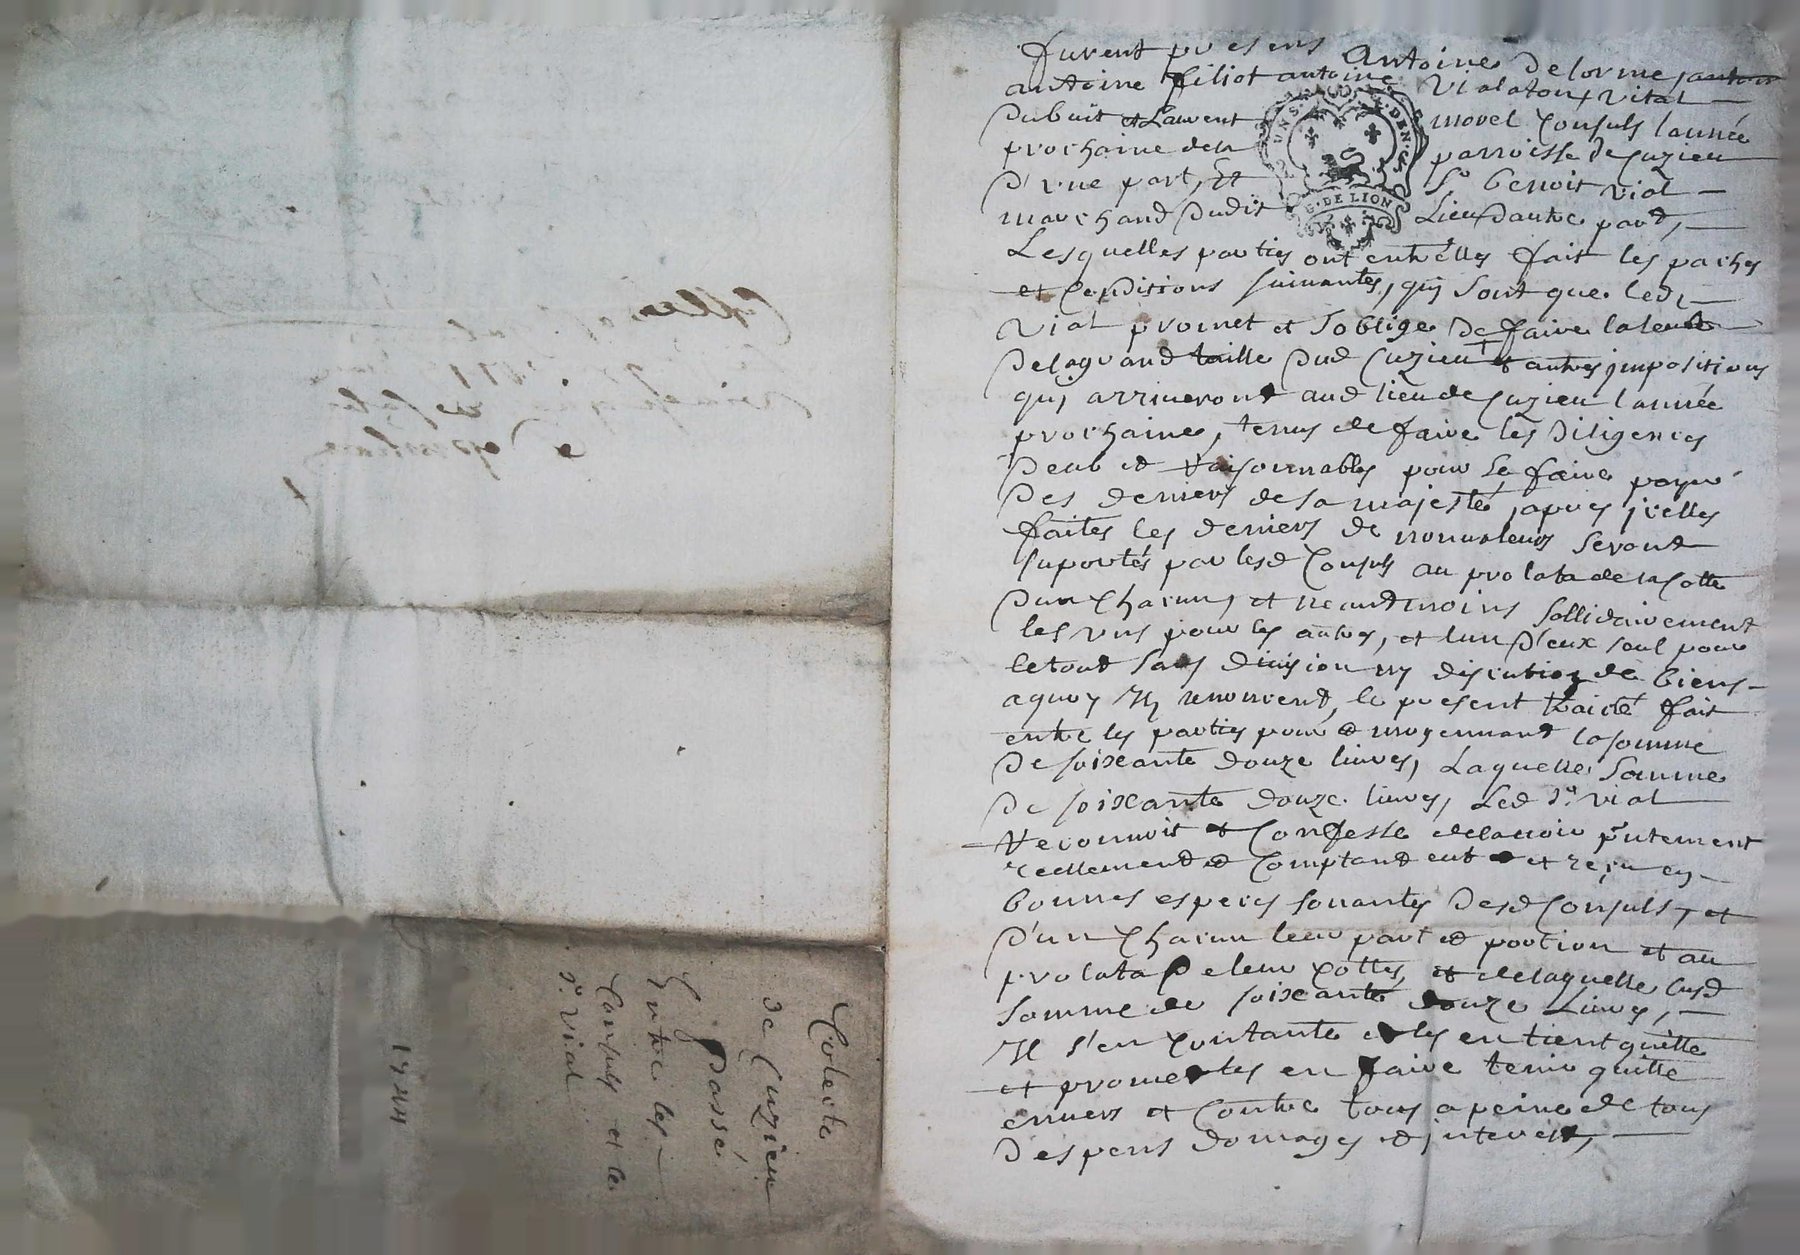 furent presens Antoine Delorme, antoine
antoine filiot antoine Vialaton, vital
Dubuit et Laurent morel Consuls lannée
prochaine de la parroisse de Cuzieu
d'une part, Et Sr. benoit vial
marchand dudit Lieu dautre part,
Lesquelles parties ont entre elles fait les paches
et Conditions suivantes, qui sont que led.
vial promet et soblige de faire la leuée
de la grand taille dud Cuzieu & autres jmpositions
quj arriueront aud lieu de Cuzieu lannée
prochaine, tenus de faire les Diligences
Deub et raisonnables pour se faire payer
Des deniers de sa majesté, apres jcelles
faites les deniers de nonualeurs seront
suportés par lesd Consuls au prolata de la Cotte
dun Chacun, et neantmoins sollidairement
les vns pour les autres, et lun d'eux seul pour
le tout sans diuision ny discution de biens
a quoy Ils renoncent, le present traicté fait
entre les parties pour & moyennant la somme
de soixante douze liures, Laquelle somme
de soixante douze liures, Led sr. vial
reconnoit & Confesse de lauoir pntement
reellement & Comptant eub et reçu en
bonnes especes sonantes Desd Consuls, et
d'un Chacun leur part & portion et au
prolata de leur Cottes, & de laquelle susd
somme de soixante douze Liures,
Il s'en Contante & les en tient quitte
et promet les en faire tenir quitte
enuers et Contre tous a peine de tous
despens domages & jnterest,
Colecte
de Cuzieu
Passé
Entre les
Consuls et le
sr. vial
1744
G. DE LION